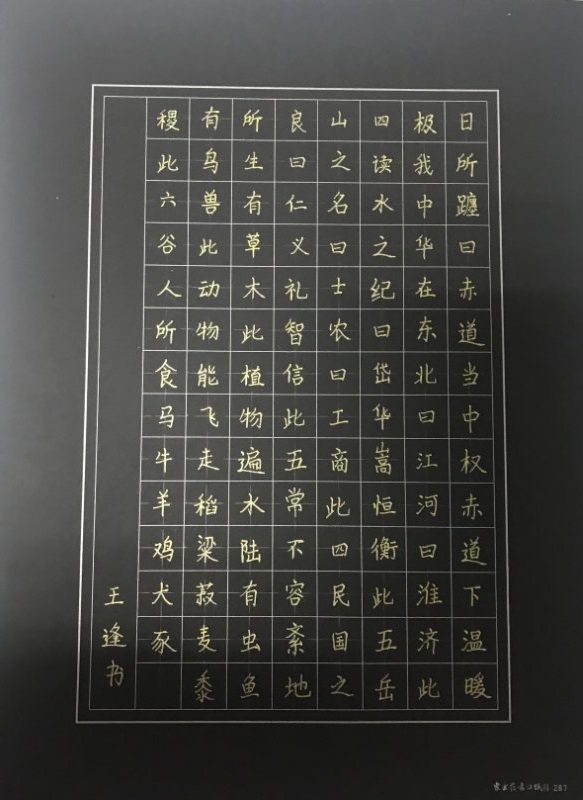 日所躔曰赤道当中权赤道下温暖
极我中华在东北曰江河曰淮济此
四读水之纪曰岱华嵩恒衡此五岳
山之名曰士农曰工商此四民国之
良曰仁义礼智信此五常不容紊地
所生有草木此植物遍水陆有虫鱼
有鸟兽此动物能飞走稻粱菽麦黍
稷此六谷人所食马牛羊鸡犬豕
王逢书